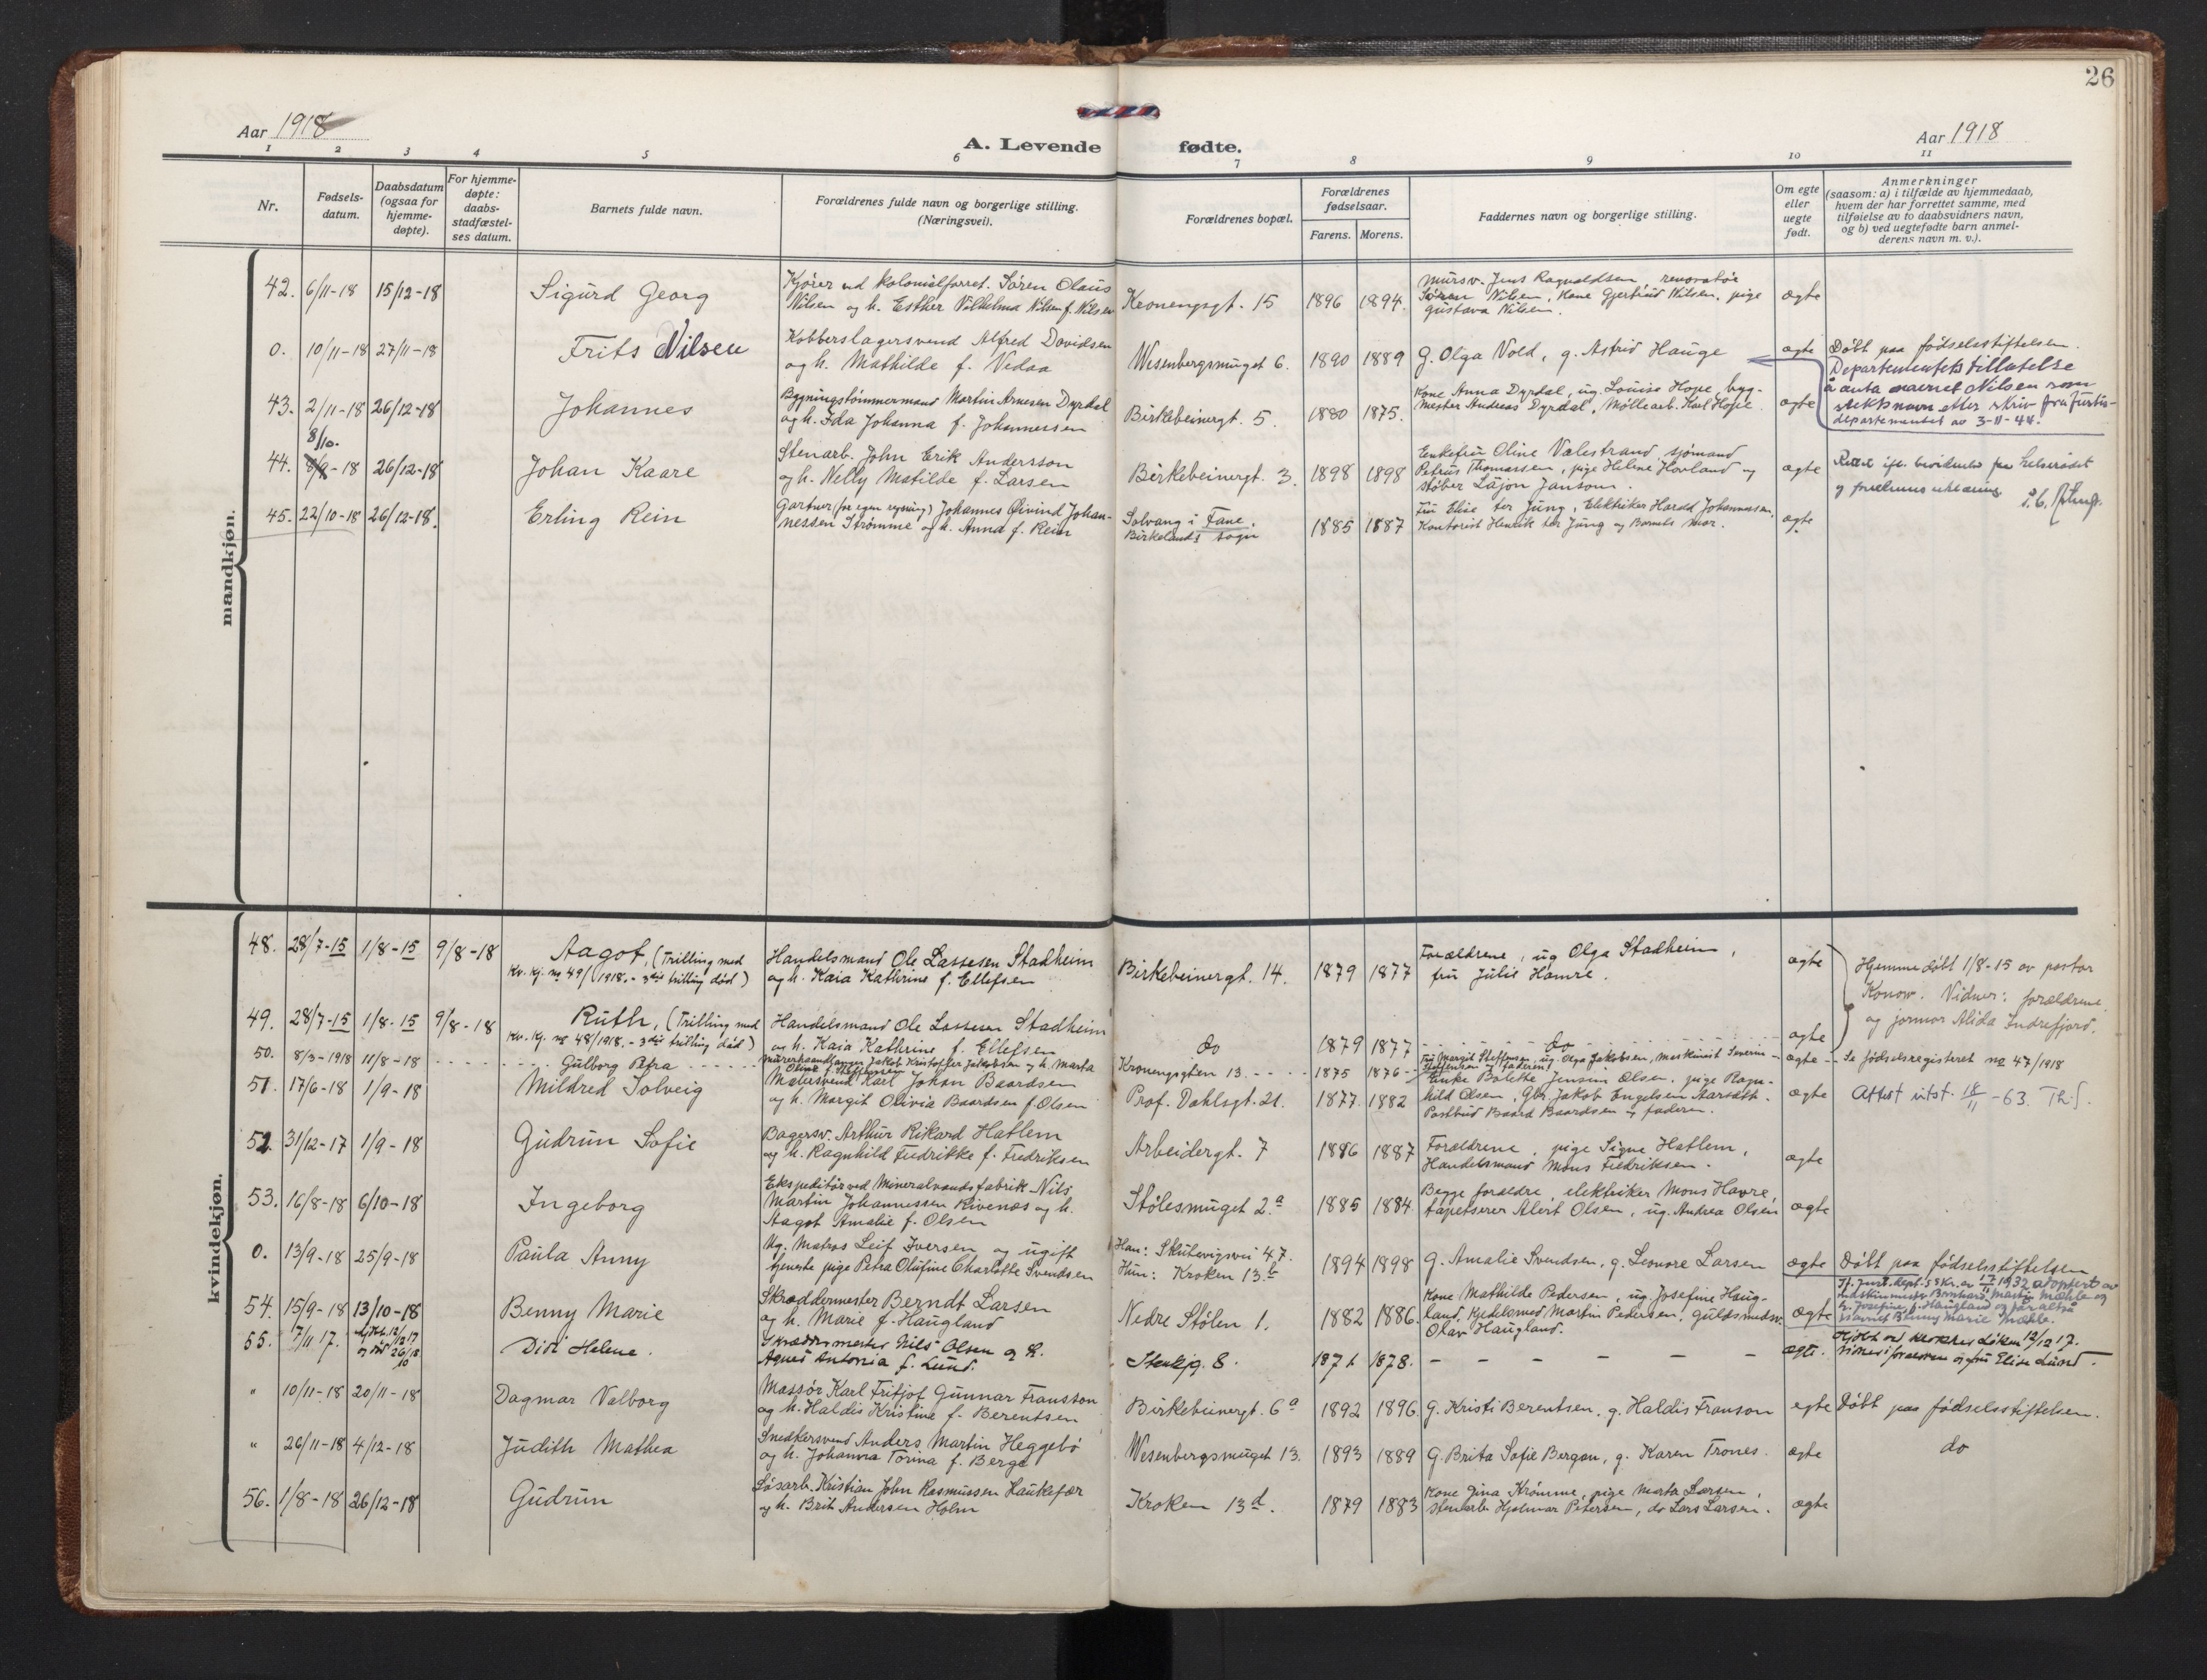 26
Aar 1918
A. Levende fødte.
Aar 1918
1 2 3 4 5 6 7 8 9 10 11
Nr.
Fødsels-
datum.
Daabsdatum
(ogsaa for
hjemme-
døpte).
For hjemme-
døpte:
daabs-
stadfæstel-
ses datum.
Barnets fulde navn.
Forældrenes fulde navn og borgerlige stilling.
(Næringsvei).
Forældrenes bopæl.
Forældrenes
fødselsaar.
Farens. Morens.
Faddernes navn og borgerlige stilling.
Om egte
eller
uegte
født.
Anmerkninger
(saasom: a) i tilfælde av hjemmedaab,
hvem der har forrettet samme, med
tilføielse av to daabsvidners navn,
og b) ved uegtefødte barn anmel-
derens navn m. v.).
mandkjøn.
42. 6/11-18 15/12-18
Sigurd Georg
Kjører ved kolonialforret. Søren Olaus
Nilsen og h. Esther Vilhelmna Nilsen f. Nilsen
Kronengsgt. 15
1896 1894.
Mursv. Jens Ragnvaldsen, renovatør
Søren Nilsen, Kone Gjertrud Nilsen, pige
Gustava Nilsen.
ægte
0. 10/11-18 27/11-18
Frits Nilsen
Kobberslagersvend Alfred Davidsen
og h. Mathilde f. Vedaa
Wesenbergsmuget 6.
1890 1889
G. Olga Vold, g. Astrid Hauge
ægte
Døbt paa fødselsstiftelsen.
Departementets tillatelse
å anta navnet Nilsen som
slektsnavn etter skriv fra Justis-
departementet av 3-11-44.
43. 2/11-18 26/12-18
Johannes
Bygningstømmermand Martin Arnesen Dyrdal
og h. Ida Johanna f. Johannessen
Birkebeinergt. 5.
1880 1875.
Kone Anna Dyrdal, ug. Louise Hope, byg-
mester Andreas Dyrdal, Møllearb. Karl Hope.
ægte
8/10.
44. 8/9-18 26/12-18
Johan Kaare
Stenarb. John Erik Andersson
og h. Nelly Matilde f. Larsen
Birkebeinergt. 3.
1898 1898
Enkefru Oline Valestrand, sjømand
Petrus Thomassen, pige Helene Hovland og
støber Lajon Janson.
ægte
Rettet ifl. bevidnelse fra helserådet
og
45. 22/10-18 26/12-18.
Erling Rein
Gartner (for egen regning) Johannes Øivind Johan-
nessen Strømme og h. Anna f. Rein
Solvang i Fane.
Birkelands sogn
1885 1887
Fru Elise ter Jung, Elektriker Harald Johannessen,
Kontorist Henrik ter Jung og Barnets mor.
ægte
kvindekjøn.
48. 28/7-15 1/8-15 9/8-18
Aagot, (Trilling med
Kv. kj. no 49/1918. - 3die trilling død)
Handelsmand Ole Lassesen Stadheim
og h. Kaia Kathrine f. Ellefsen
Birkebeinergt. 14.
1879 1877
Forældrene, ug Olga Stadheim,
fru Julie Hamre.
ægte
Hjemmedøbt 1/8-15 av pastor
Konow. Vidner: forældrene
og jormor Alida Indrefjord.
49. 28/7-15 1/8-15 9/8-18
Ruth, (Trilling med
Kv. Kj. no 48/1918. - 3die trilling død)
Handelsmand Ole Lassesen Stadheim
og h. Kaia Kathrine f. Ellefsen
do
1879 1877
do
ægte
50. 8/3-1918 11/8-18
Gulborg Petra
Murerhaandlanger Jakob Kristoffer Jakobsen og h. Marta
Oline f. Steffensen
Kronengsgten 13.
1875 1876
Fru Margit Steffensen, ug. Olga Jakobsen, maskinist Severin
Steffensen og faderen
ægte
Se fødselsregisteret no 47/1918
51. 17/6-18 1/9-18
Mildred Solveig
Malersvend Karl Johan Baardsen
og h. Margit Olivia Baardsen f. Olsen
Prof. Dahlsgt. 21.
1877. 1882
Enke Bolette Jensine Olsen, pige Ragn-
hild Olsen, Gbr. Jakob Engelsen Aarseth.
Postbud Baard Baardsen og faderen.
ægte
Attest utst. 18/11-63. Th.J.
52. 31/12-17 1/9-18
Gudrun Sofie
Bagersv. Arthur Rikard Hatlem
og h. Ragnhild Fredrikke f. Fredriksen
Arbeidergt. 7
1886 1887
Forældrene, pige Signe Hatlem,
Handelsmand Mons Fredriksen.
ægte
53. 16/8-18 6/10-18
Ingeborg
Ekspeditør ved Mineralvandsfabrik Nils
Martin Johannessen Rivenæs og h.
Aagot Amalie f. Olsen
Stølesmuget 2.a
1885 1884.
Begge forældre, elektriker Mons Havre,
tapetserer Alert Olsen, ug. Andrea Olsen
ægte
0. 13/9-18 25/9-18
Paula Anny
Ug. Matros Leif Iversen og ugift
tjeneste pige Petra Olufine Charlotte Svendsen
Han: Skutevigsvei 47.
Hun: Kroken 13.b
1894 1898
G. Amalie Svendsen, g. Leonore Larsen
ægte
Døbt paa fødselsstiftelsen
54. 15/9-18 13/10-18
Benny Marie
Skræddermester Berndt Larsen
og h. Marie f. Haugland
Nedre Stølen 1.
1882 1886.
Kone Mathilde Pedersen, ug. Josefine Haug-
land, Kjedelsmed Martin Pedersen, Guldsmedsv.
Olav Haugland.
ægte
If. Just.dept.s skr. av 17/11 1932 adoptert av
Bernhard Martin Mæhle og
h. Josefine f. Haugland og får altså
navnet Benny Marie Mæhle.
55. 7/11 17. Hjdbt. 12/12 17
og død 26/10 18
Didi Helene.
Skræddermester Nils Olsen og h.
Agnes Antonia f. Lund.
Stenkjg. 8.
1871 1878.
- - - - - -
ægte.
Hjdbt ved 12/12 17.
forældrene og fru Elise Lund.
" 10/11-18 20/11-18
Dagmar Valborg
Massør Karl Fritjof Gunnar Fransson
og h. Haldis Kristine f. Berentsen
Birkebeinergt. 6a
1892 1896.
G. Kristi Berentsen, g. Haldis Franson
egte
Døbt paa fødselsstiftelsen.
" 26/11-18 4/12-18
Judith Mathea
Snedkersvend Anders Martin Heggebø
og h. Johanna Torina f. Berge
Wesenbergsmuget 13.
1893 1889
G. Brita Sofie Bergan, g. Karen Trones.
ægte
do
56. 1/8-18 26/12-18
Gudrun
Løsarb. Kristian John Rasmussen Haukefær
og h. Brit Andersen Holm
Kroken 13d.
1879 1883
Kone Gina Krømme, pige Marta Larsen,
Stenarb. Hjalmar Petersen, do Lars Larsen.
ægte